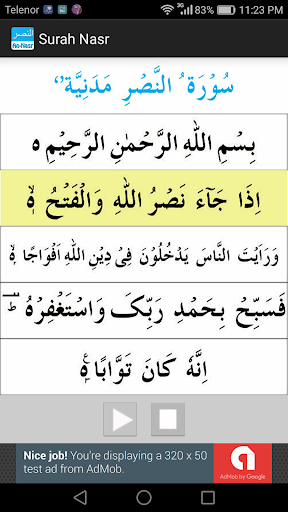 Telenor 3G 83% 11:23 PM
النصر
An-Nasr
Surah Nasr
سُوْرَةُ النَّصْرِ مَدَنِيَّةٌ
بِسْمِ اللهِ الرَّحْمٰنِ الرَّحِيْمِ ۝
اِذَا جَآءَ نَصْرُ اللهِ وَالْفَتْحُ ۝ۙ
وَرَاَيْتَ النَّاسَ يَدْخُلُوْنَ فِىْ دِيْنِ اللهِ اَفْوَاجًا ۝ۙ
فَسَبِّحْ بِحَمْدِ رَبِّكَ وَاسْتَغْفِرْهُ ؕ
اِنَّهٗ كَانَ تَوَّابًا ۝ۧ
Nice job! You're displaying a 320 x 50
test ad from AdMob.
AdMob by Google